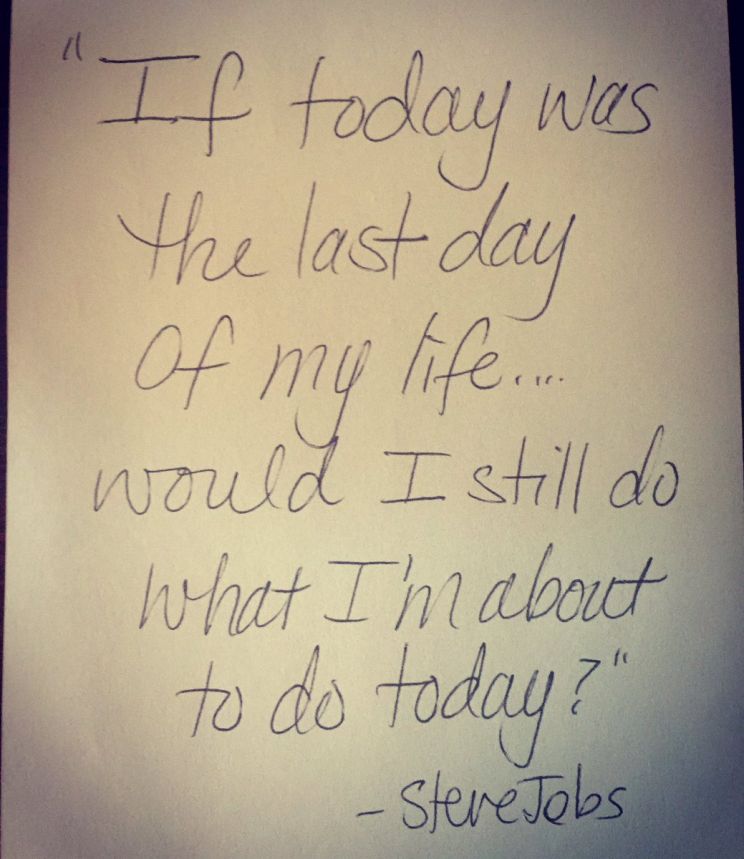 "If today was
the last day
Of my life....
would I still do
what I'm about
to do today?"
- Steve Jobs